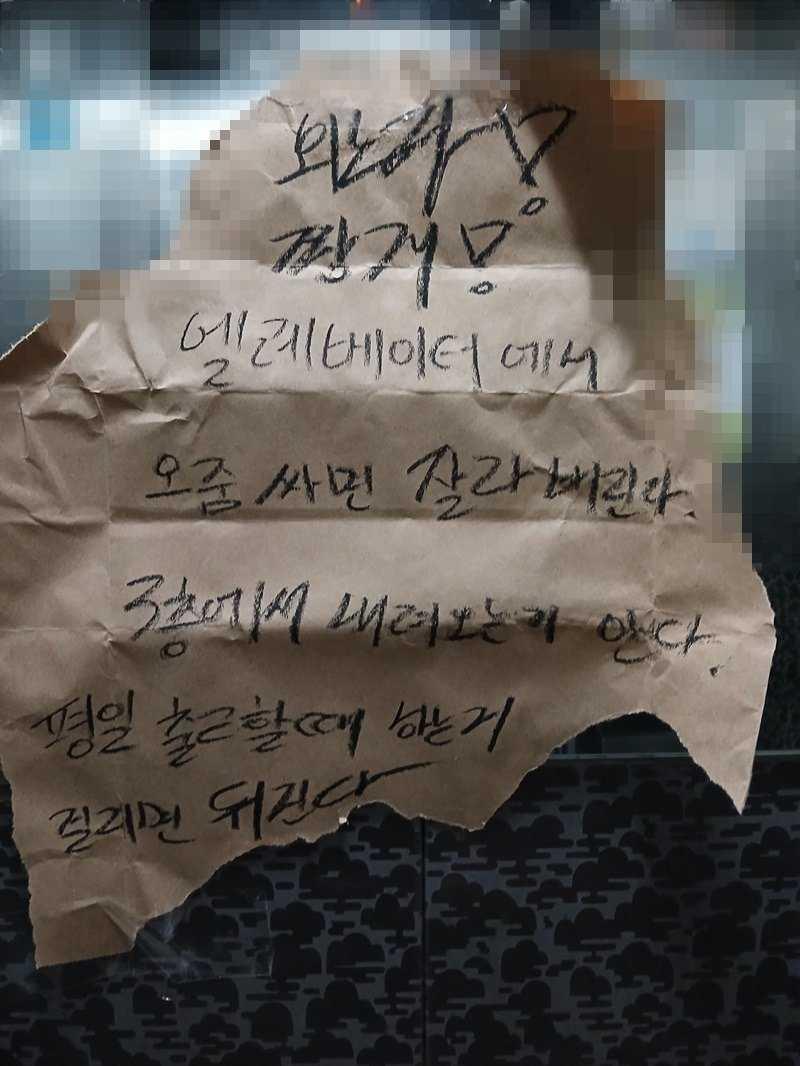 완싸!
짠개!
엘레베이터에서
오줌 싸면 잘라버린다.
3층에서 내려오는거 안다.
평일 출근할때 하는거
걸리면 뒤진다